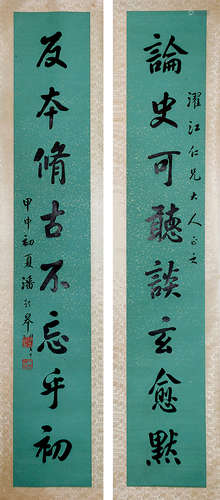 濯江仁兄大人正之
論史可聽談玄愈默
反本脩古不忘乎初
甲申初夏潘齡皋